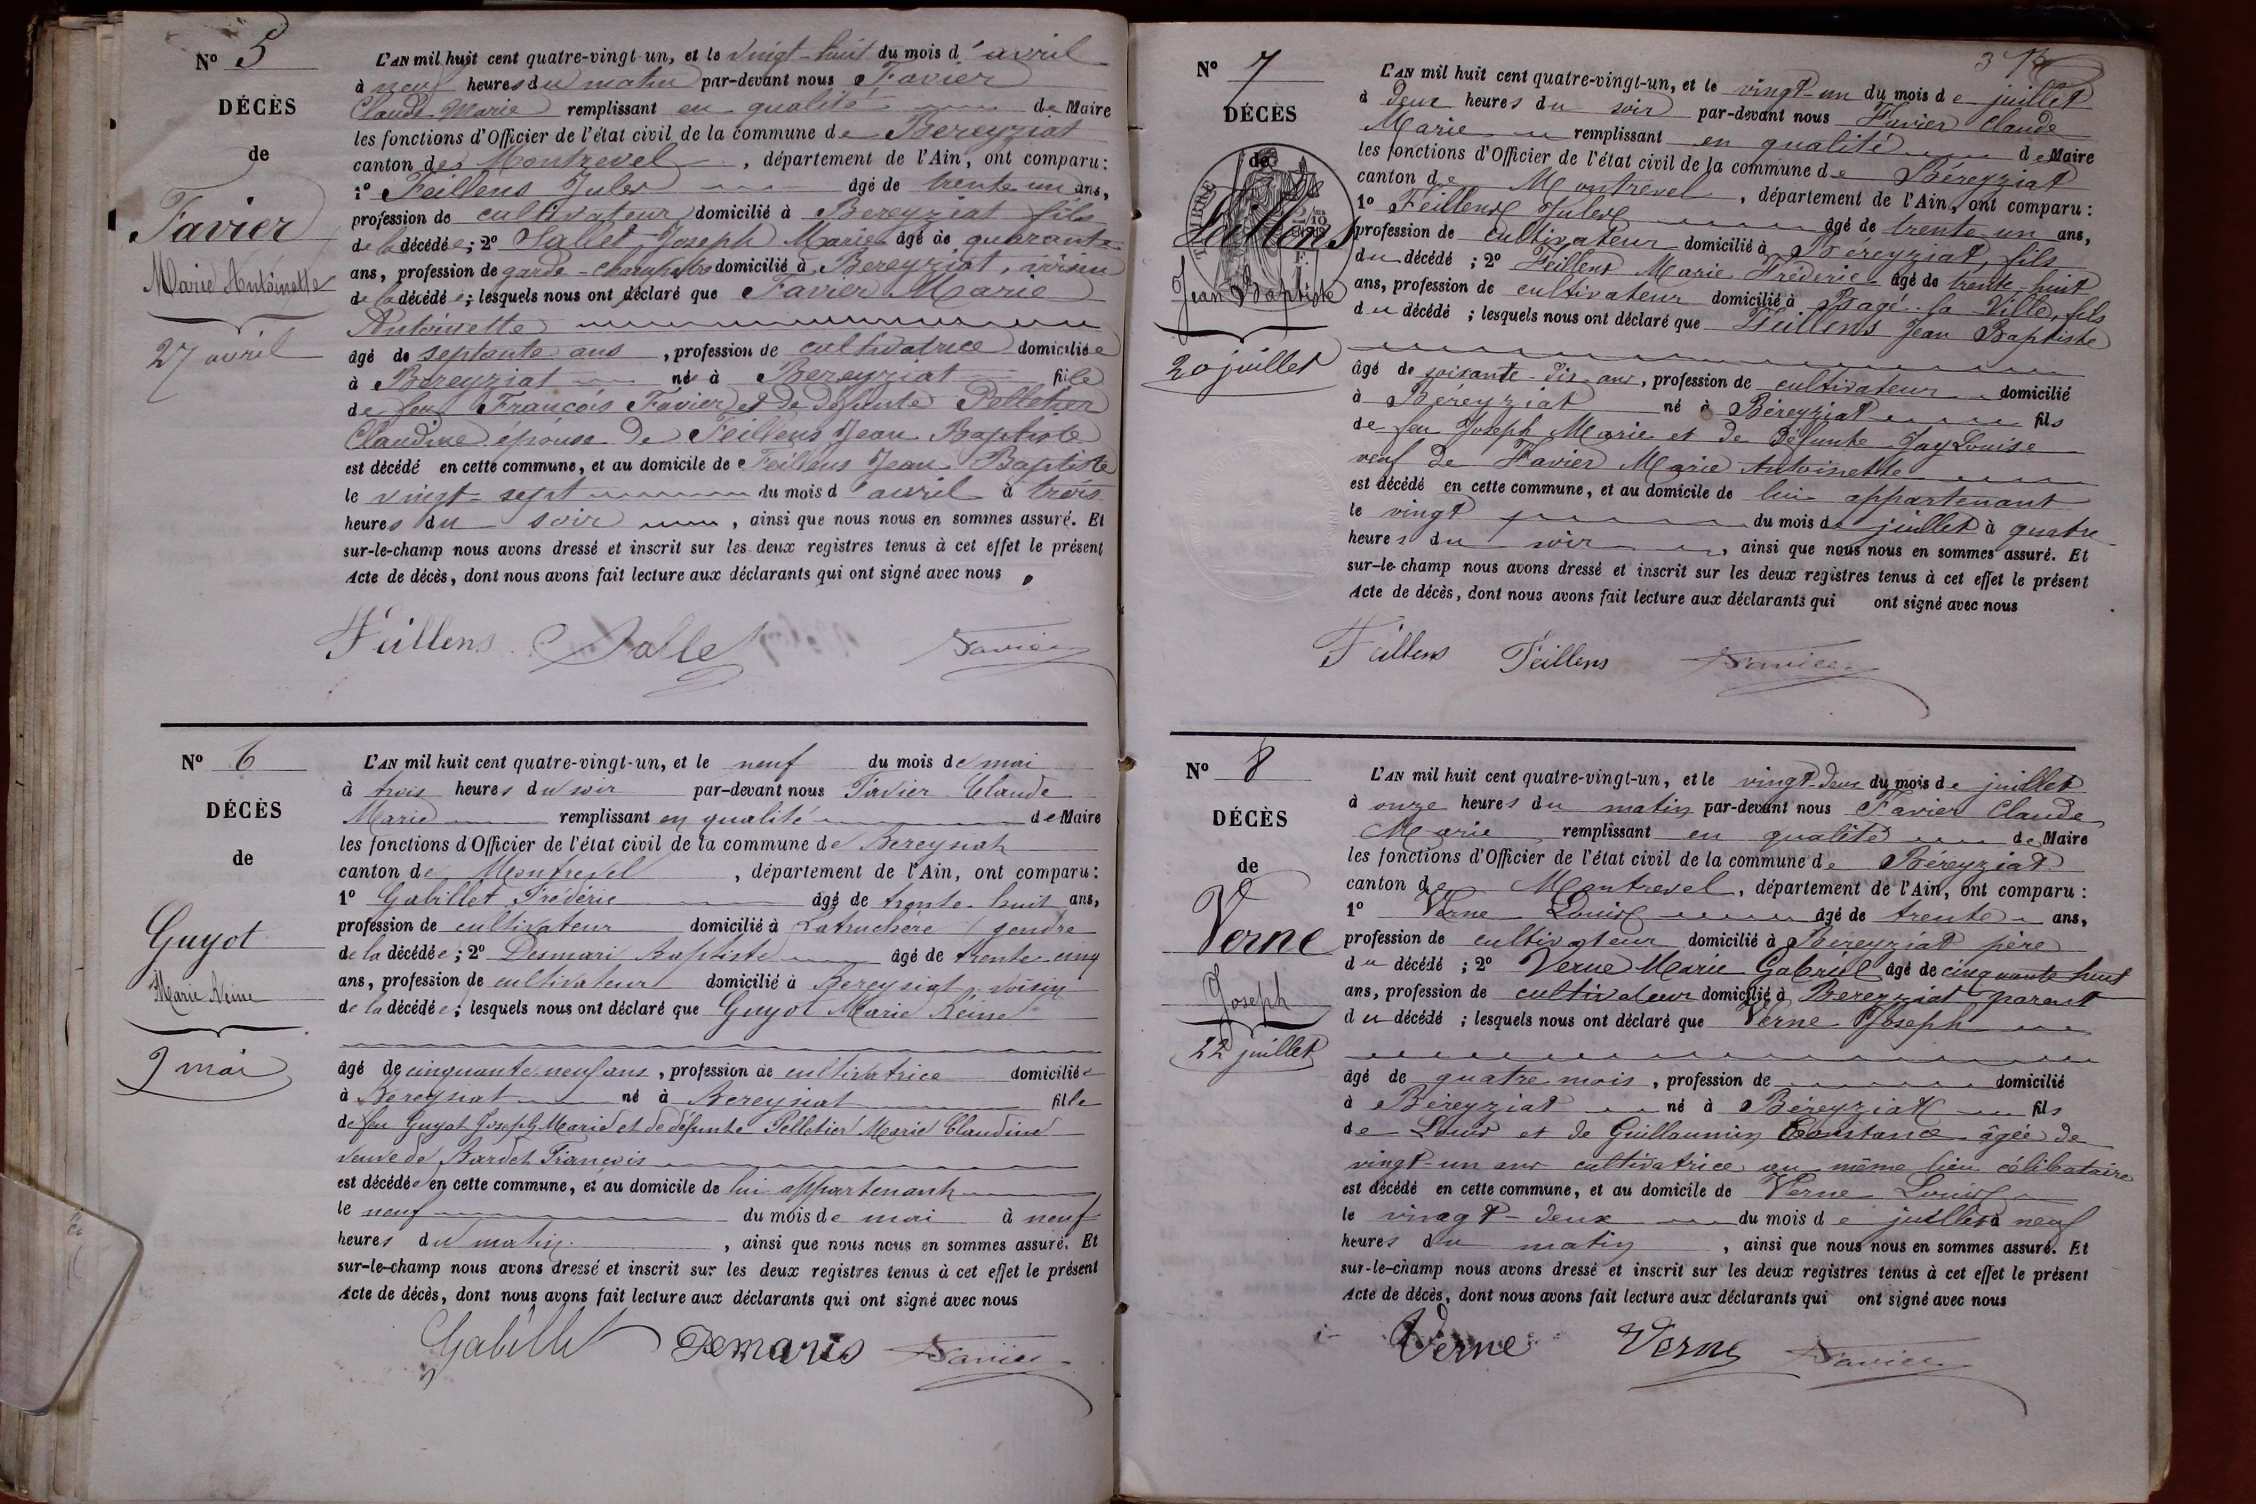 N° 5
DÉCÈS
de
Favier
Marie Antoinette
27 avril
L'AN mil huit cent quatre-vingt-un, et le vingt-huit du mois d'avril
à neuf heures du matin par-devant nous Favier
Claude Marie remplissant en qualité de Maire
les fonctions d'Officier de l'état civil de la commune de Bereyziat
canton de Montrevel, département de l'Ain, ont comparu:
1° Feillens Jules âgé de trente un ans,
profession de cultivateur domicilié à Bereyziat fils
de la décédée; 2° Sallet Joseph Marie âgé de quarante
ans, profession de garde-champêtre domicilié à Bereyziat, voisin
de la décédée; lesquels nous ont déclaré que Favier Marie
Antoinette
âgé de septante ans, profession de cultivatrice domiciliée
à Bereyziat née à Bereyziat fille
de feu François Favier et de défunte Pelletier
Claudine épouse de Feillens Jean Baptiste
est décédé en cette commune, et au domicile de Feillens Jean Baptiste
le vingt-sept du mois d'avril à trois
heures du soir, ainsi que nous nous en sommes assuré. Et
sur-le-champ nous avons dressé et inscrit sur les deux registres tenus à cet effet le présent
Acte de décès, dont nous avons fait lecture aux déclarants qui ont signé avec nous
Feillens Sallet Favier
N° 6
DÉCÈS
de
Guyot
Marie Reine
9 mai
L'AN mil huit cent quatre-vingt-un, et le neuf du mois de mai
à trois heures du soir par-devant nous Favier Claude
Marie remplissant en qualité de Maire
les fonctions d'Officier de l'état civil de la commune de Bereysiat
canton de Montrevel, département de l'Ain, ont comparu:
1° Gabillet Frédéric âgé de trente-huit ans,
profession de cultivateur domicilié à Latruchère gendre
de la décédée; 2° Desmari Baptiste âgé de trente-cinq
ans, profession de cultivateur domicilié à Bereysiat, voisin
de la décédée; lesquels nous ont déclaré que Guyot Marie Reine
âgé de cinquante-neuf ans, profession de cultivatrice domiciliée
à Bereysiat né à Bereysiat fille
de feu Guyot Joseph Marie et de défunte Pelletier Marie Claudine
veuve de Bardet François
est décédée en cette commune, et au domicile de lui appartenant
le neuf du mois de mai à neuf
heures du matin, ainsi que nous nous en sommes assuré. Et
sur-le-champ nous avons dressé et inscrit sur les deux registres tenus à cet effet le présent
Acte de décès, dont nous avons fait lecture aux déclarants qui ont signé avec nous
Gabillet Demaris Favier
3
N° 7
DÉCÈS
de
Feillens
Jean Baptiste
20 juillet
L'AN mil huit cent quatre-vingt-un, et le vingt-un du mois de juillet
à deux heures du soir par-devant nous Favier Claude
Marie remplissant en qualité de Maire
les fonctions d'Officier de l'état civil de la commune de Béreyziat
canton de Montrevel, département de l'Ain, ont comparu:
1° Feillens Jules âgé de trente-un ans,
profession de cultivateur domicilié à Béreyziat, fils
du décédé; 2° Feillens Marie Frédéric âgé de trente-huit
ans, profession de cultivateur domicilié à Bagé-la-Ville, fils
du décédé; lesquels nous ont déclaré que Feillens Jean Baptiste
âgé de soixante-dix ans, profession de cultivateur domicilié
à Béreyziat né à Béreyziat fils
de feu Joseph Marie et de défunte Jay Louise
veuf de Favier Marie Antoinette
est décédé en cette commune, et au domicile de lui appartenant
le vingt du mois de juillet à quatre
heures du soir, ainsi que nous nous en sommes assuré. Et
sur-le-champ nous avons dressé et inscrit sur les deux registres tenus à cet effet le présent
Acte de décès, dont nous avons fait lecture aux déclarants qui ont signé avec nous
Feillens Feillens Favier
N° 8
DÉCÈS
de
Verne
Joseph
22 juillet
L'AN mil huit cent quatre-vingt-un, et le vingt-deux du mois de juillet
à onze heures du matin par-devant nous Favier Claude
Marie remplissant en qualité de Maire
les fonctions d'Officier de l'état civil de la commune de Béreyziat
canton de Montrevel, département de l'Ain, ont comparu:
1° Verne Louis âgé de trente ans,
profession de cultivateur domicilié à Béreyziat père
du décédé; 2° Verne Marie Gabriel âgé de cinquante huit
ans, profession de cultivateur domicilié à Bereyziat parent
du décédé; lesquels nous ont déclaré que Verne Joseph
âgé de quatre mois, profession de domicilié
à Béreyziat né à Béreyziat fils
de Louis et de Guillaumin Constance âgée de
vingt-un ans cultivatrice au même lieu célibataire
est décédé en cette commune, et au domicile de Verne Louis
le vingt-deux du mois de juillet à neuf
heures du matin, ainsi que nous nous en sommes assuré. Et
sur-le-champ nous avons dressé et inscrit sur les deux registres tenus à cet effet le présent
Acte de décès, dont nous avons fait lecture aux déclarants qui ont signé avec nous
Verne Verne Favier